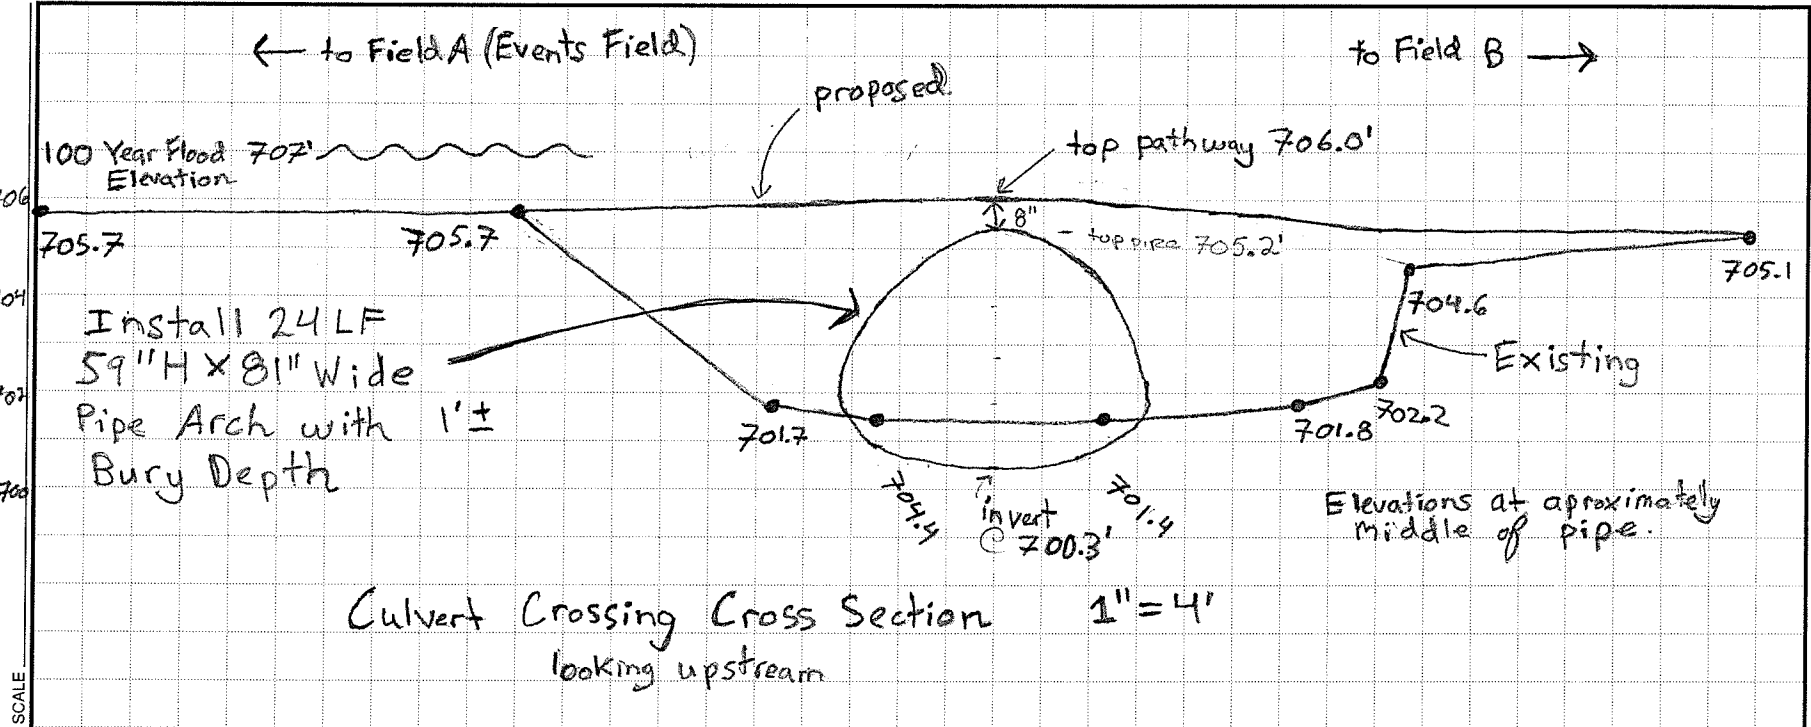 ← to Field A (Events Field)
to Field B →
proposed
100 Year Flood 707'
Elevation
top pathway 706.0'
706
8"
top pipe 705.2'
705.7
705.7
705.1
704
704.6
Install 24 LF
59"H X 81" Wide
Pipe Arch with 1'±
Bury Depth
Existing
702
702.2
701.7
701.8
700
704.4
invert
@ 700.3'
701.4
Elevations at aproximately
middle of pipe.
Culvert Crossing Cross Section 1"=4'
looking upstream
SCALE